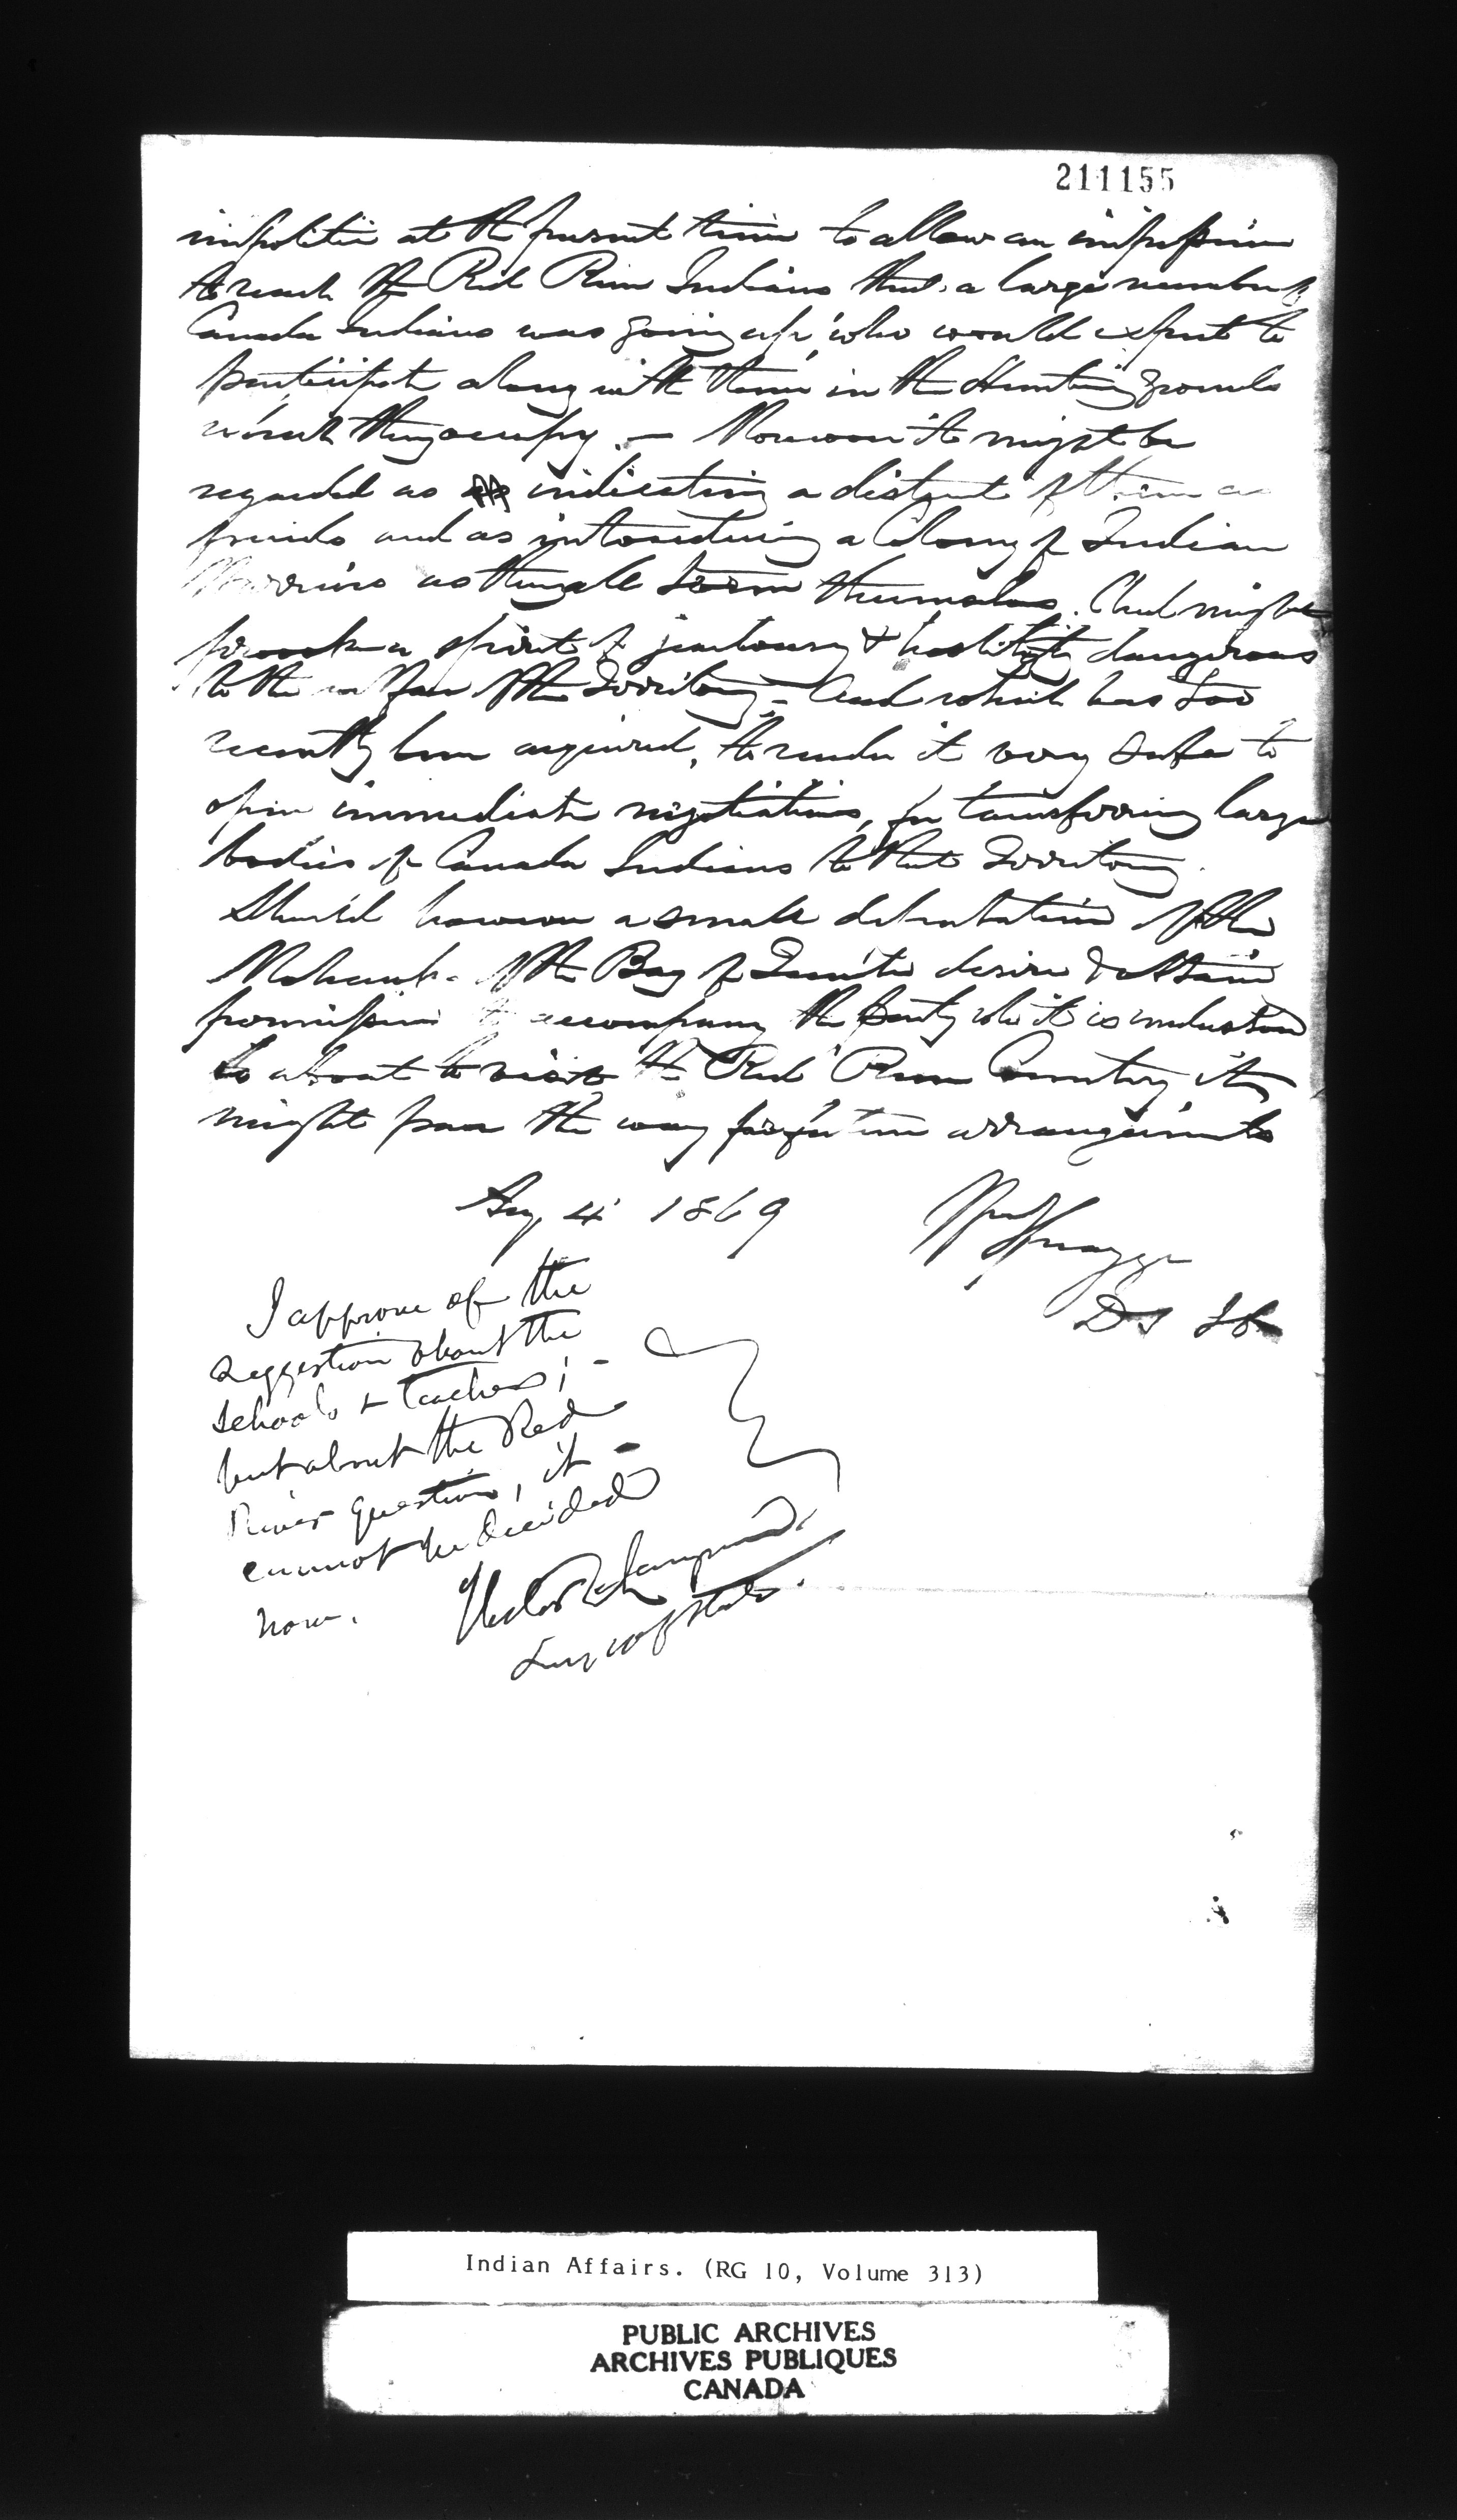 211155
impolitic at the present time to allow an impression
to reach the Red River Indians that a large number of
Canada Indians was going up, who would expect to
participate along with them in the Hunting grounds
which they occupy. — Moreover it might be
regarded as indicating a distrust of them as
friends and as introducing a Colony of Indian
Warriors as they all term themselves. And might
provoke a spirit of jealousy & hostility dangerous
to the welfare of the Territory – And which has too
recently been acquired, to render it very safe to
open immediate negotiations, for transferring large
bodies of Canada Indians to that Territory.
Should however a small deputation of the
Mohawks of the Bay of Quinté desire & obtain
permission to accompany the party who it is understood
is about to visit the Red River Country it
might pave the way for future arrangements
Aug 4 1869
Spragge
D S I A
I approve of the
suggestion about the
schools & teachers; –
but about the Red
River question, it –
cannot be decided
now.
Hector L. Langevin
Secy of State.
Indian Affairs. (RG 10, Volume 313)
PUBLIC ARCHIVES
ARCHIVES PUBLIQUES
CANADA